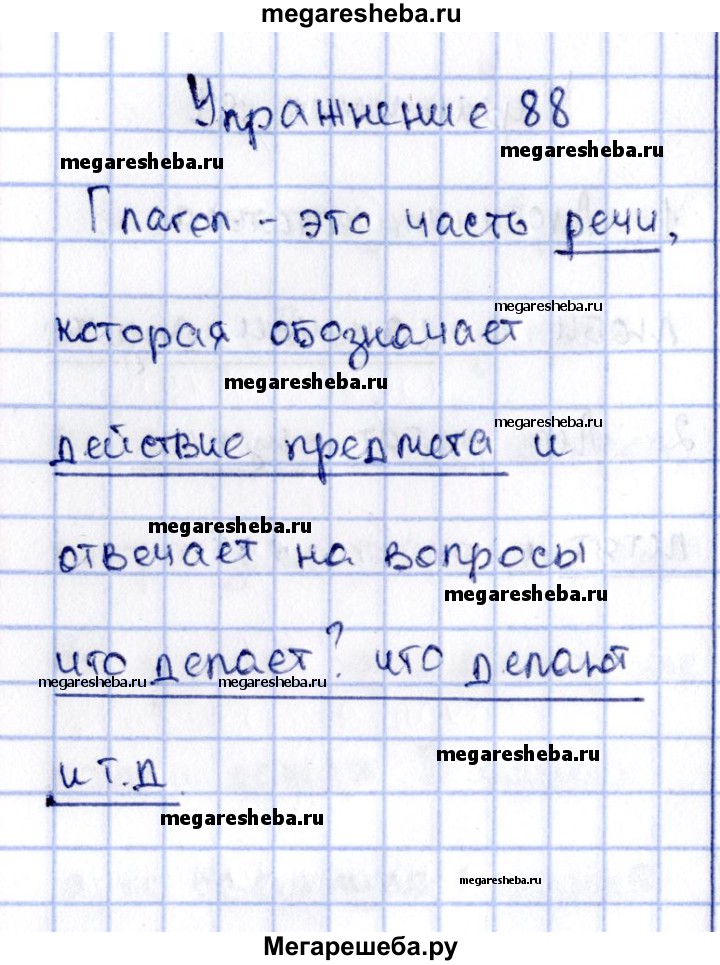 megaresheba.ru
Упражнение 88
megaresheba.ru
megaresheba.ru
Глагол - это часть речи,
megaresheba.ru
которая обозначает
megaresheba.ru
megaresheba.ru
действие предмета и
megaresheba.ru
отвечает на вопросы
megaresheba.ru
что делает? что делают
megaresheba.ru megaresheba.ru
megaresheba.ru
и т.д
megaresheba.ru
megaresheba.ru
Мегарешеба.ру